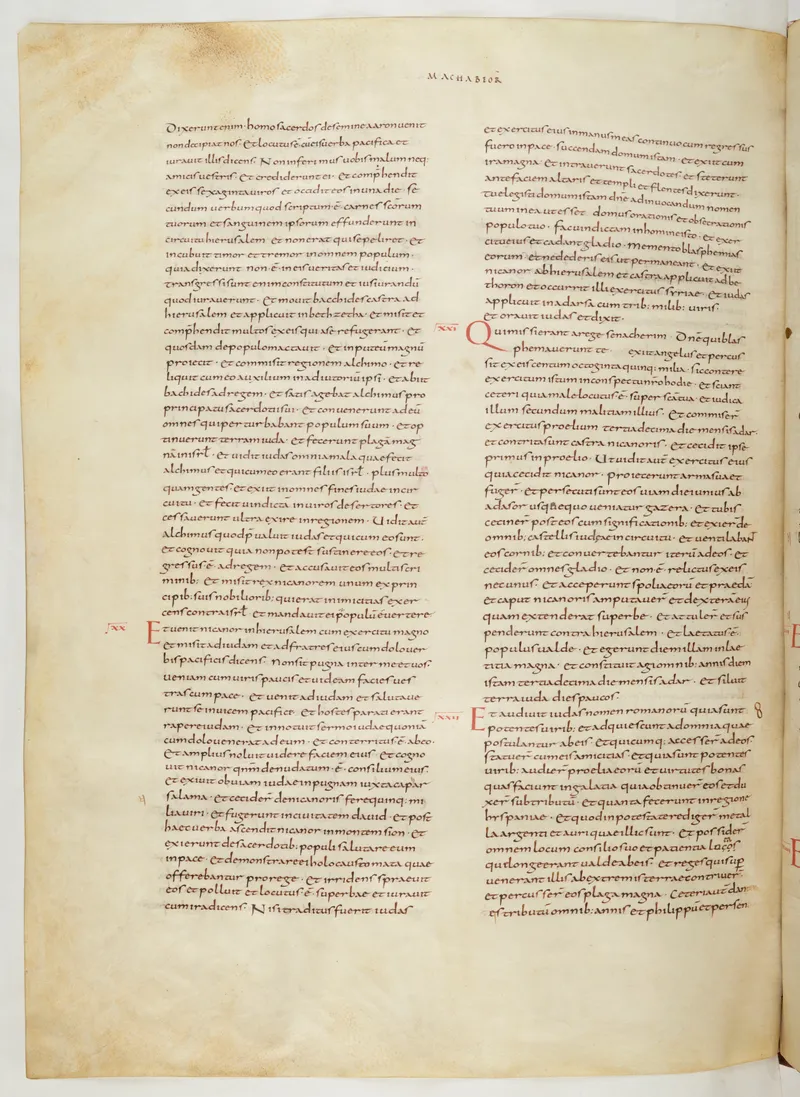 MACHABIOR̄
Dixerunt enim · homo sacerdos de semine aaron uenit
non decipiat nos · Et locutus ē cū eis uerba pacifica et
iurauit illis dicens · Non inferimus uobis malum neq:
amicis uestris · Et crediderunt ei · Et comp̄hendit
ex eis sexaginta uiros et occidit eos in una die · se
cundum uerbum quod scriptum ē · carnes sc̄orum
tuorum et sanguinem ipsorum effunderunt in
circuitu hierusalem · et non erat qui sepeliret · Et
incubuit timor et tremor in omnem populum ·
quia dixerunt · non ·ē· in eis ueritas et iudicium ·
transgressi sunt enim constitutum et iusiurandū
quod iurauerunt · Et mouit bacchides castra ad
hierusalem et applicuit in bethzetha · Et misit et
comp̄hendit multos ex eis qui a se refugerant · et
quosdam de populo mactauit · et in puteū magnū
proiecit · Et commisit regionem alchimo · et re
liquit cum eo auxilium in adiutoriū ipsi · Et abiit
bachides ad regem · Et satis agebat alchimus pro
principatu sacerdotii sui · Et conuenerunt ad eū
omnes qui perturbabant populum suum · et op
tinuerunt terram iuda · et fecerunt plagā mag
nā in isrl̄ · Et uidit iudas omnia mala quae fecit
alchimus et qui cum eo erant filiis isrl̄ · plus multo
quam gentes · et exiit in omnes fines iudae in cir
cuitu · et fecit uindictā in uiros desertores · et
cessauerunt ultra exire in regionem · Vidit aut̄
alchimus quod p̄ualuit iudas et qui cum eo sunt ·
et cognouit quia non potest sustinere eos · et re
gressus ē ad regem · et accusauit eos multis cri
minib: Et misit rex nicanorem unum ex prin
cipib: suis nobilioribus · qui erat inimicitias exer
cens contra isrl̄ · et mandauit ei populū euertere
XX Et uenit nicanor in hierusalem cum exercitu magno
et misit ad iudam et ad fratres eius cum dolo uer
bis pacificis dicens · Non sit pugna inter me et uos
ueniam cum uiris paucis et uideam facies ues
tras cum pace · Et uenit ad iudam et salutaue
runt se inuicem pacifice · Et hostes parati erant
rapere iudam · et innotuit sermo iudae quoniā
cum dolo uenerat ad eum · et conterritus ē ab eo ·
et amplius noluit uidere faciem eius · et cogno
uit nicanor qnm̄ denudatum ·ē· consilium eius ·
et exiuit obuiam iudae in pugnam iuxta capar
salama · et cecider̄ de nicanoris fere quinq: mi
lia uiri · et fugerunt in ciuitatem dauid · et post
haec uerba ascendit nicanor in montem sion · et
exierunt de sacerdotib: populi salutare eum
in pace · Et demonstrare ei holocaustomata quae
offerebantur pro rege · et irridens spraeuit
eos et polluit et locutus ē superbae et iurauit
cum ira dicens · Nisi traditus fuerit iudas
et exercitus eius in manus meas continuo cum regressus
fuero in pace · succendam domum istam · et exiit cum
ira magna · Et intrauerunt sacerdotes et steterunt
ante faciem altaris et templi et flentes dixerunt ·
tu elegisti domum istam dn̄e ad inuocandum nomen
tuum in ea ut esset domus orationis et obsecrationis
populo tuo · fac uindictam in homine isto et exer
citu eius et cadant gladio · memento blasphemias
eorum · et ne dederis eis ut permaneant · et exiit
nicanor ab hierusalem et castra applicuit ad be
thoron et occurrit illi exercitus syriae · et iudas
applicuit in adarsa cum trib: milib: uiris ·
et orauit iudas et dixit ·
XXI Qui missi erant a rege senacherim · Dn̄e qui blas
phemauerunt te · exiit angelus et percus
sit ex eis centum octoginta quinq: milia · sic contere
exercitum istum in conspectu nr̄o hodie · et sciant
ceteri quia male locutus ē super sc̄a tua · et iudica
illum secundum malitiam illius · Et commiser̄
exercitus proelium tertia decima die mensis adar ·
et contrita sunt castra nicanoris · et cecidit ipse
primus in proelio · Ut uidit aut̄ exercitus eius
quia cecidit nicanor · proiecerunt arma sua et
fuger̄ · et persecuti sunt eos uiam diei unius ab
adasor usq̄ quo ueniatur gazera · et tubis
ceciner̄ post eos cum significationib: et exier̄ de
omnib: castellis iudaea in circuitu · et uentilabant
eos cornib: et conuertebantur iterū ad eos · et
cecider̄ omnes gladio · et non ·ē· relictus ex eis
nec unus · Et acceperunt spolia eorū et praedā
et caput nicanoris amputauer̄ · et dexterā eius
quam extenderat superbe · Et attuler̄ et sus
penderunt contra hierusalem · Et laetatus ē
populus ualde · et egerunt diem illam in lae
titia magna · et constituit agi omnib: annis diem
istam tertia decima die mensis adar · et siluit
terra iuda dies paucos ·
XXII Et audiuit iudas nomen romanorū quia sunt
potentes uirib: et adquiescunt ad omnia quae
postulantur ab eis · Et quicumq: accesser̄ ad eos
statuer̄ cum eis amicitias · et quia sunt potentes
uirib: audier̄ proelia eorū et uirtutes bonas
quas faciunt in galatia quia obtinuer̄ eos et du
xer̄ sub tributū · et quanta fecerunt in regione
hrspaniae · et quod in potestate rediger̄ metal
la argenti et auri quae illic sunt · et posseder̄
omnem locum consilio suo et patientia locos
qui longe erant ualde ab eis · et reges qui sup̄
uenerant illis ab extremis terrae contriuer̄
et percusser̄ eos plaga magna · Ceteri aut̄ dant
eis tributū omnib: annis et philippū et persen